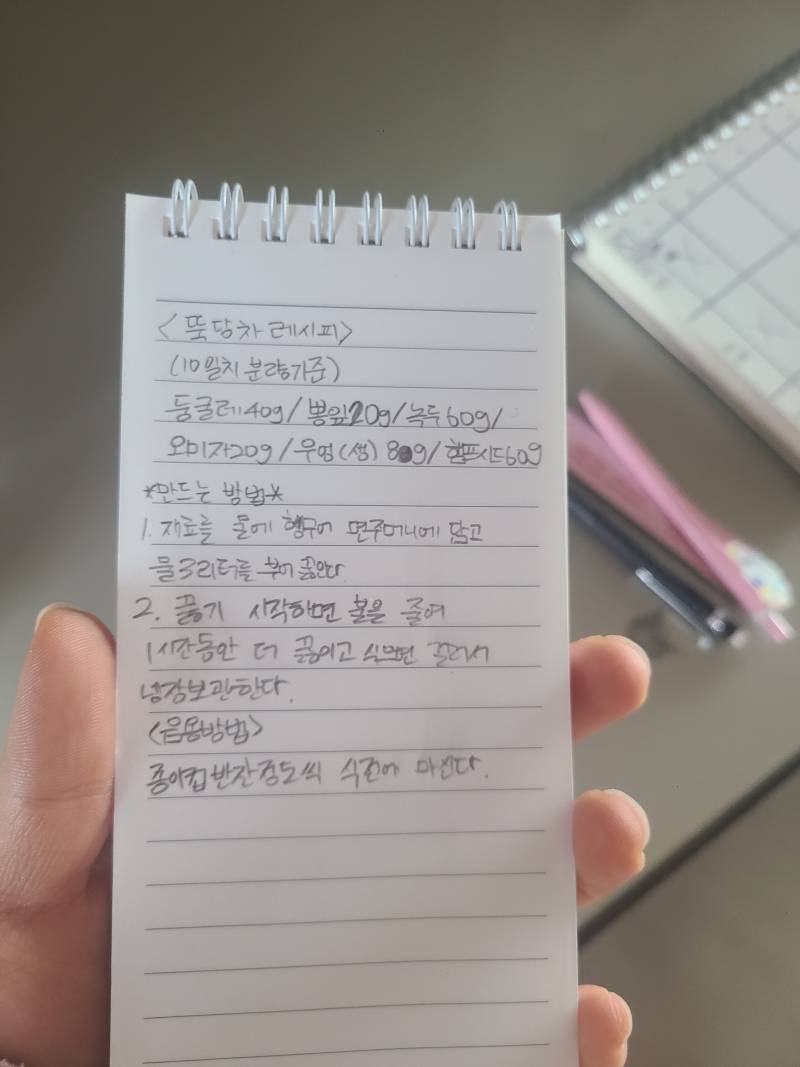 <뚝당차 레시피>
(10일치 분량기준)
둥굴레40g/뽕잎20g/녹두60g/
오미자20g/우엉(생) 80g/햄프시드60g
*만드는 방법*
1. 재료를 물에 헹구어 면주머니에 담고
물3리터를 부어 끓인다.
2. 끓기 시작하면 불을 줄여
1시간동안 더 끓이고 식으면 걸러서
냉장보관한다.
<음용방법>
종이컵 반잔정도씩 식전에 마신다.